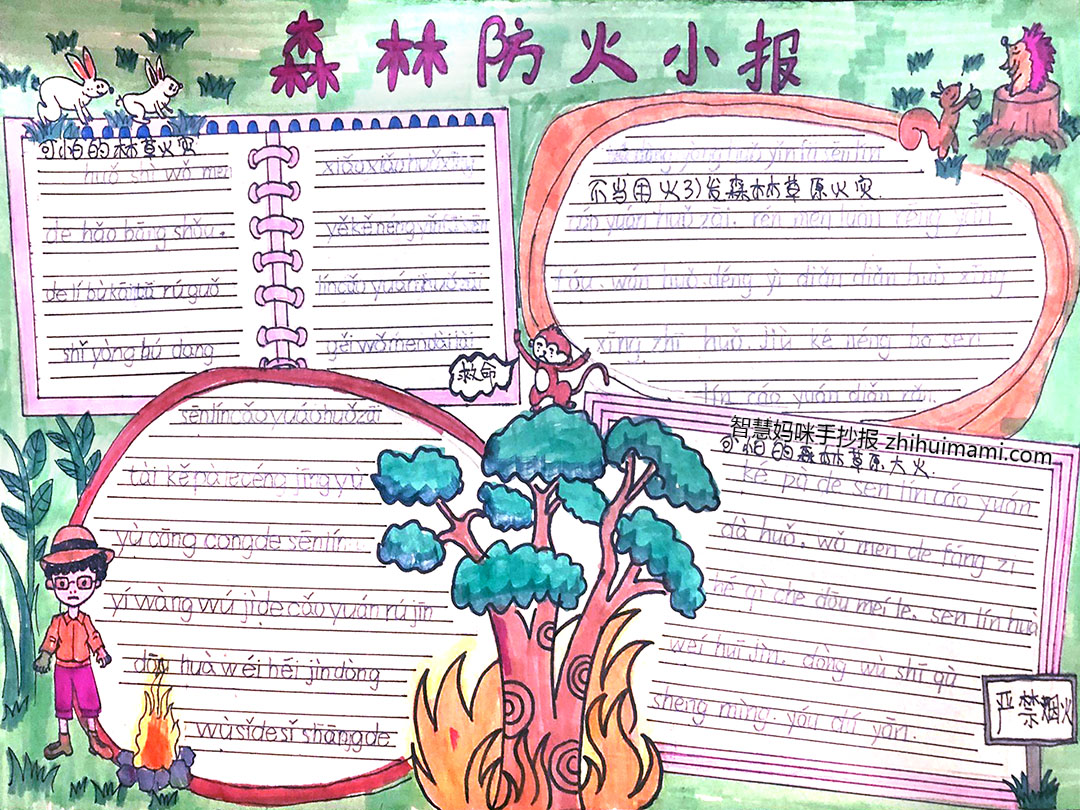 森林防火小报
可怕的林草火灾
huǒ shì wǒ men
de hǎo bāng shǒu.
de lí bù kāi tā rú guǒ
shǐ yòng bú dang
xiǎo xiǎo huǒ
yě kě néng
lín cǎo yuán huǒ zāi
gěi wǒ men dài lái
救命
不当用火
发森林草原火灾.
cáo yuán huǒ zāi. rén men luàn rēng yān
tóu. wán huǒ.děng yì diǎn diǎn huǒ xīng
xīng zhī huǒ. Jiù ké néng bǎ sen
lín cáo yuán diǎn rán.
sēn lín cǎo yuán huǒ zāi
tài kě pà le céng jīng yù
yù cōng cong de sēn lín
yí wàng wú jì de cǎo yuán rú jīn
dōu huà wéi hēi jìn dòng
wù sǐ de sǐ shāng de
智慧妈咪手抄报 zhihuimami.com
可怕的森林草原大火.
ké pà de sen lín cáo yuán
dà huǒ. wǒ men de fáng zi
hé qì che dōu méi le. sen lín huà
wei huī jìn. dòng wù shī qù
sheng mìng.
严禁烟火